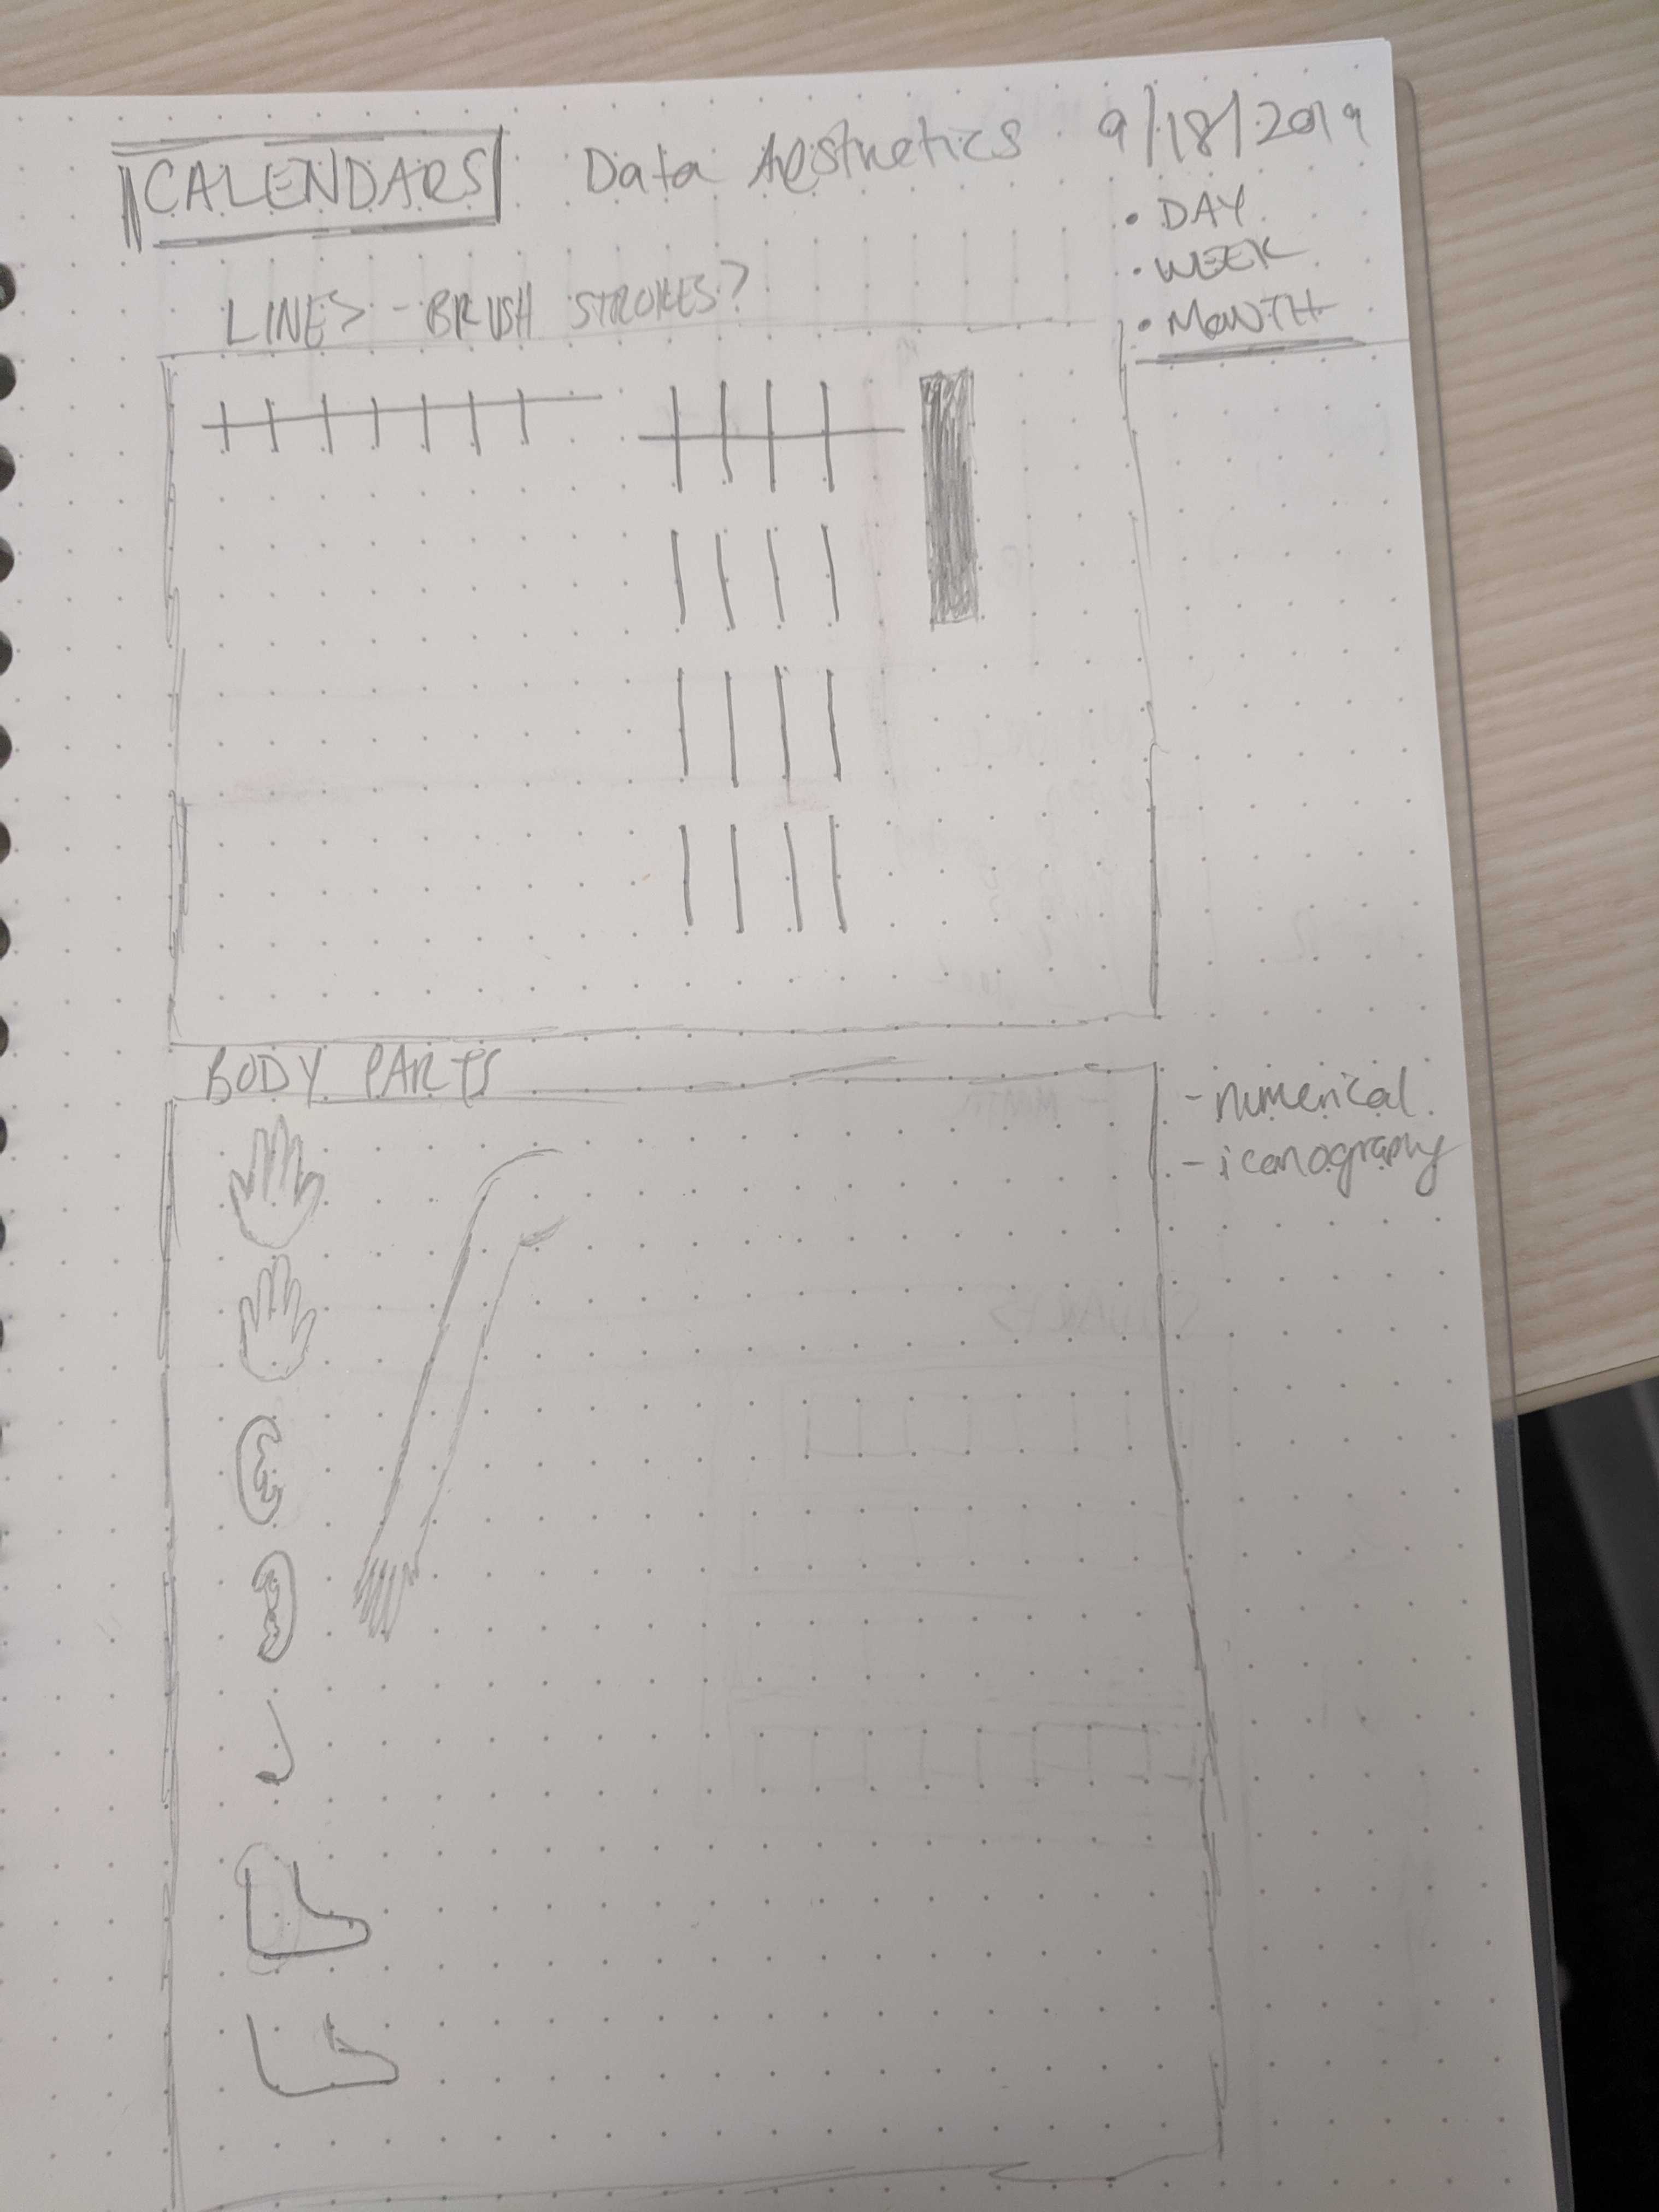 CALENDARS Data Aesthetics 9/18/2019
• DAY
• WEEK
• MONTH
LINES - BRUSH STROKES?
BODY PARTS
- numerical
- iconography